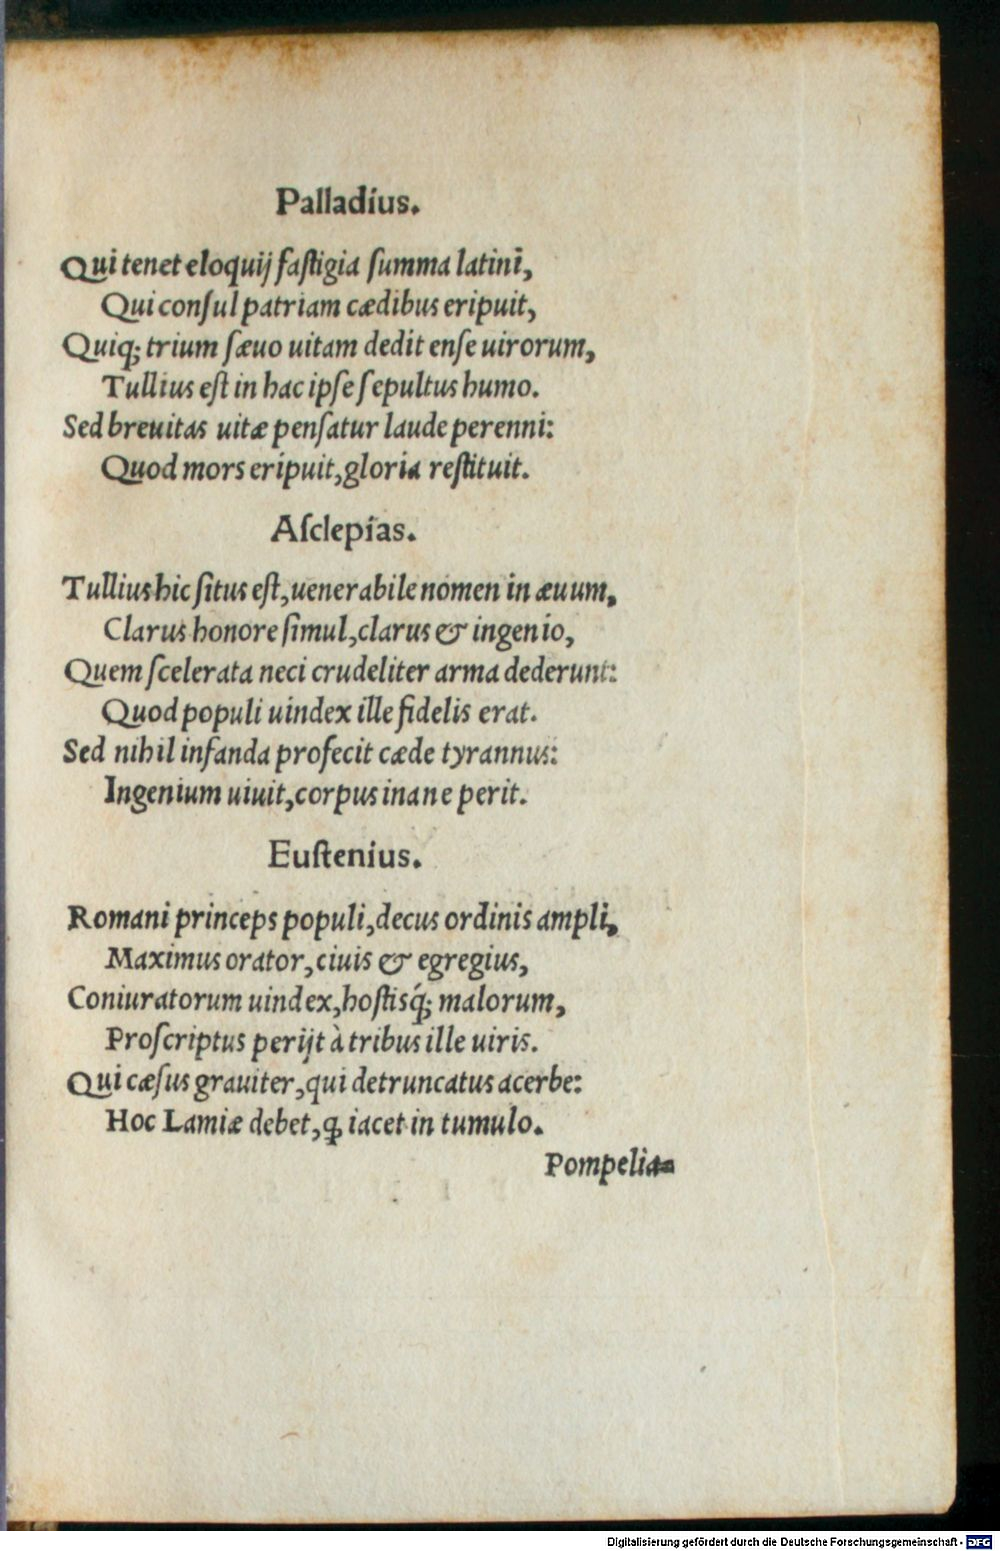 Palladius.
Qui tenet eloquij faſtigia ſumma latini,
Qui conſul patriam cædibus eripuit,
Quiq; trium ſæuo uitam dedit enſe uirorum,
Tullius eſt in hac ipſe ſepultus humo.
Sed breuitas uitæ penſatur laude perenni:
Quod mors eripuit, gloria reſtituit.
Aſclepias.
Tullius hic ſitus eſt, uenerabile nomen in æuum,
Clarus honore ſimul, clarus & ingenio,
Quem ſcelerata neci crudeliter arma dederunt:
Quod populi uindex ille fidelis erat.
Sed nihil infanda profecit cæde tyrannus:
Ingenium uiuit, corpus inane perit.
Euſtenius.
Romani princeps populi, decus ordinis ampli,
Maximus orator, ciuis & egregius,
Coniuratorum uindex, hoſtisq́; malorum,
Proſcriptus perijt à tribus ille uiris.
Qui cæſus grauiter, qui detruncatus acerbe:
Hoc Lamiæ debet, ꝙ iacet in tumulo.
Pompelia-
Digitalisierung gefördert durch die Deutsche Forschungsgemeinschaft - DFG